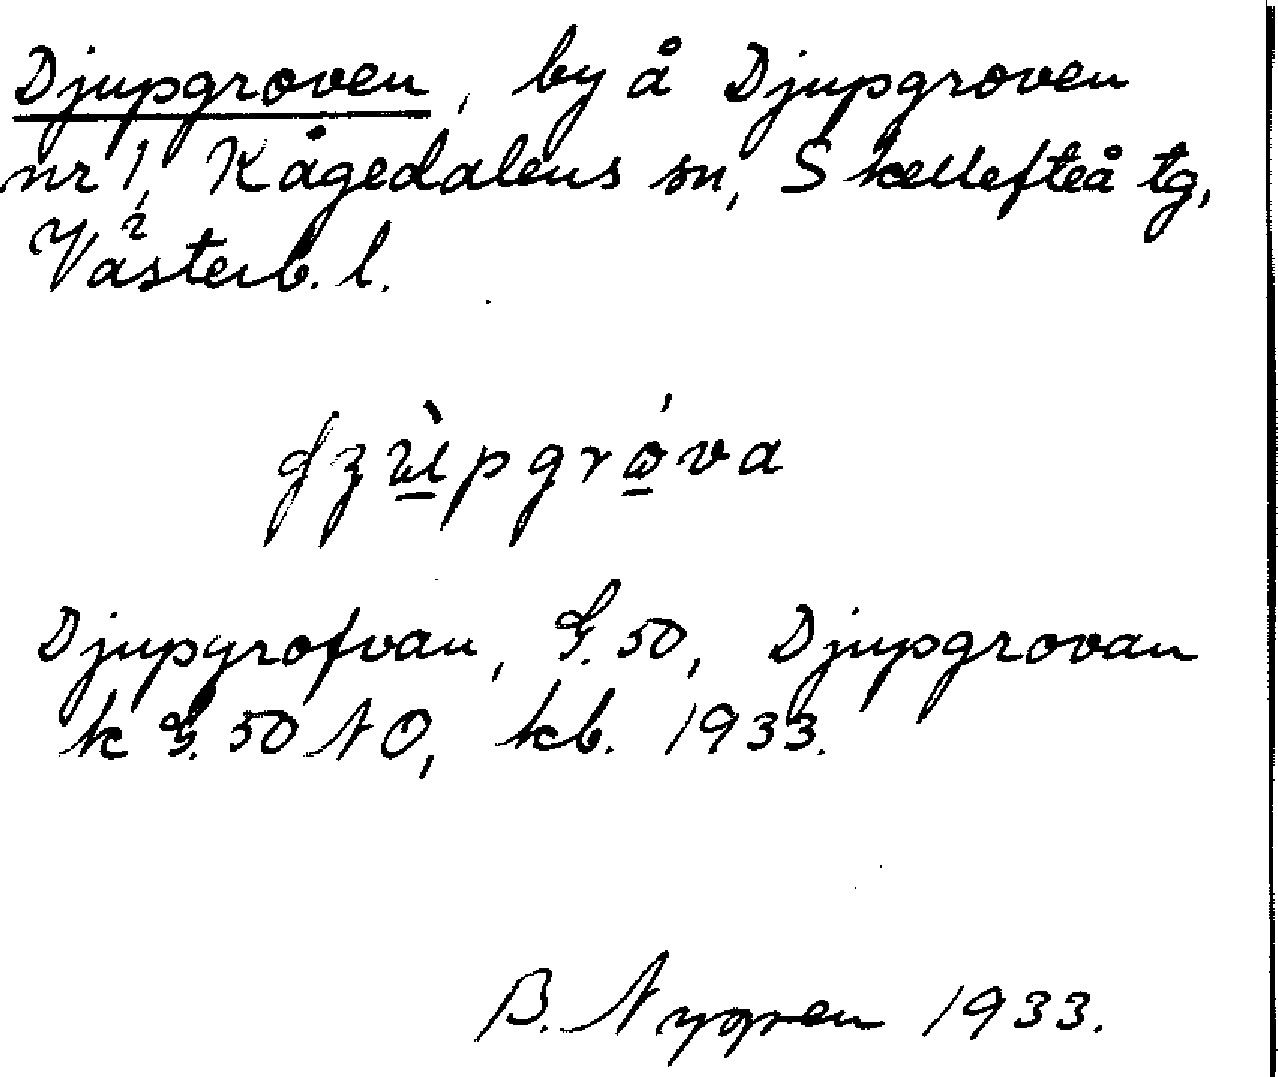 Djupgroven, by å Djupgroven
nr 1, Kågedalens sn, Skellefteå tg,
Västerb. l.
Djupgrofvan, G. 50, Djupgrovan
k G. 50 NO, kb. 1933.
B. Nygren 1933.